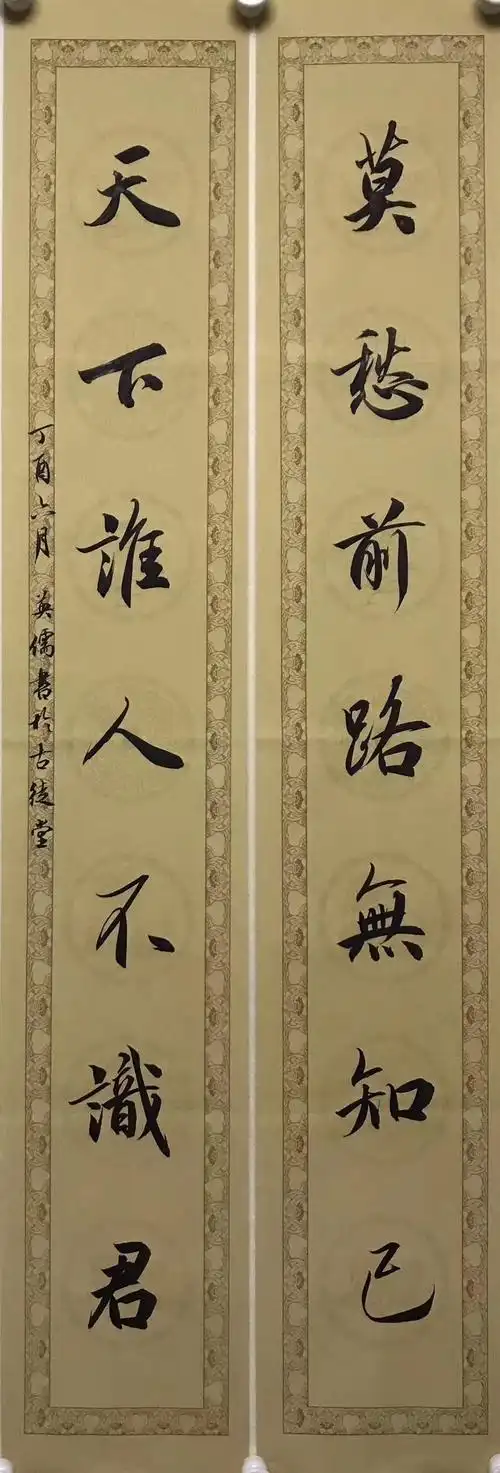 莫愁前路無知己
天下誰人不識君
丁酉六月 英儒書於古徒堂